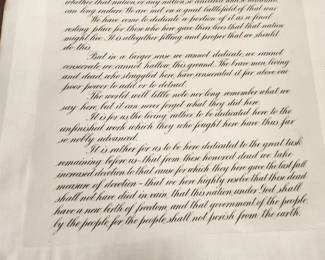 whether that nation, or any nation, so conceived and so dedicated
can long endure. We are met on a great battlefield of that war.
We have come to dedicate a portion of it as a final
resting place for those who here gave their lives that that nation
might live. It is altogether fitting and proper that we should
do this.
But in a larger sense we cannot dedicate, we cannot
consecrate, we cannot hallow this ground. The brave men, living
and dead, who struggled here, have consecrated it far above our
poor power to add or to detract.
The world will little note nor long remember what we
say here, but it can never forget what they did here.
It is for us, the living, rather to be dedicated here to the
unfinished work which they who fought here have thus far
so nobly advanced.
It is rather for us to be here dedicated to the great task
remaining before us—that from these honored dead we take
increased devotion to that cause for which they here gave the last full
measure of devotion—that we here highly resolve that these dead
shall not have died in vain, that this nation, under God, shall
have a new birth of freedom, and that government of the people,
by the people, for the people, shall not perish from the earth.